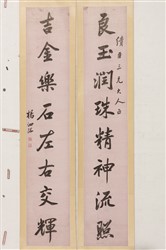 良玉潤珠精神流照
吉金樂石左右交輝